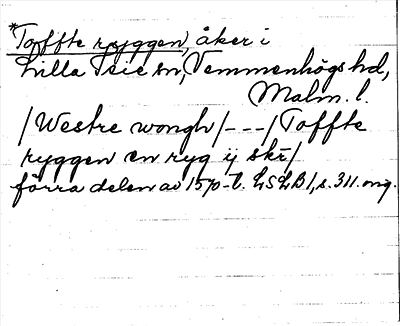 *Toffte ryggen, åker i
Lilla Isie sn, Vemmenhögs hd,
Malm. l.
/Westre wongh/---/Toffte
ryggen en ryg ij skr/
förra delen av 1570-t. LSLB1, s. 311. mg.